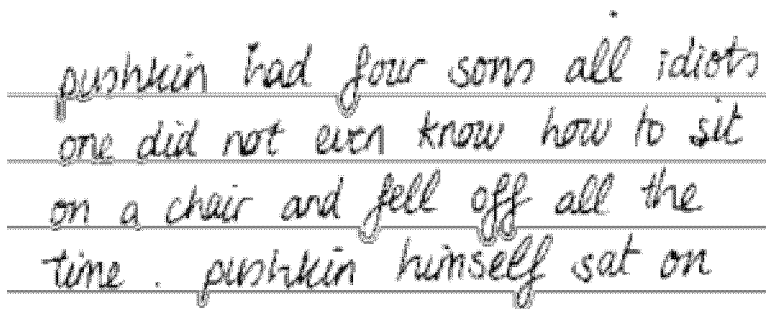 pushkin had four sons all idiots
one did not even know how to sit
on a chair and fell off all the
time . pushkin himself sat on